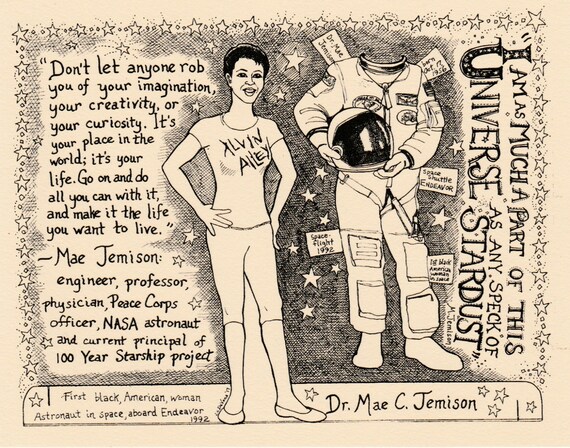 "Don't let anyone rob
you of your imagination,
your creativity, or
your curiosity. It's
your place in the
world; it's your
life. Go on and do
all you can with it,
and make it the life
you want to live."
~Mae Jemison:
engineer, professor,
physician, Peace Corps
officer, NASA astronaut
and current principal of
100 Year Starship project
ALVIN
AILEY
Dr. Mae
born
Oct. 17,
1956
Space
Shuttle
ENDEAVOR
Space-
flight
1992
1st black
American
woman
in space
M. Jemison
"I AM AS MUCH A PART OF THIS
UNIVERSE AS ANY SPECK OF
STARDUST"
First black, American, woman
Astronaut in space, aboard Endeavor
1992
Dr. Mae C. Jemison